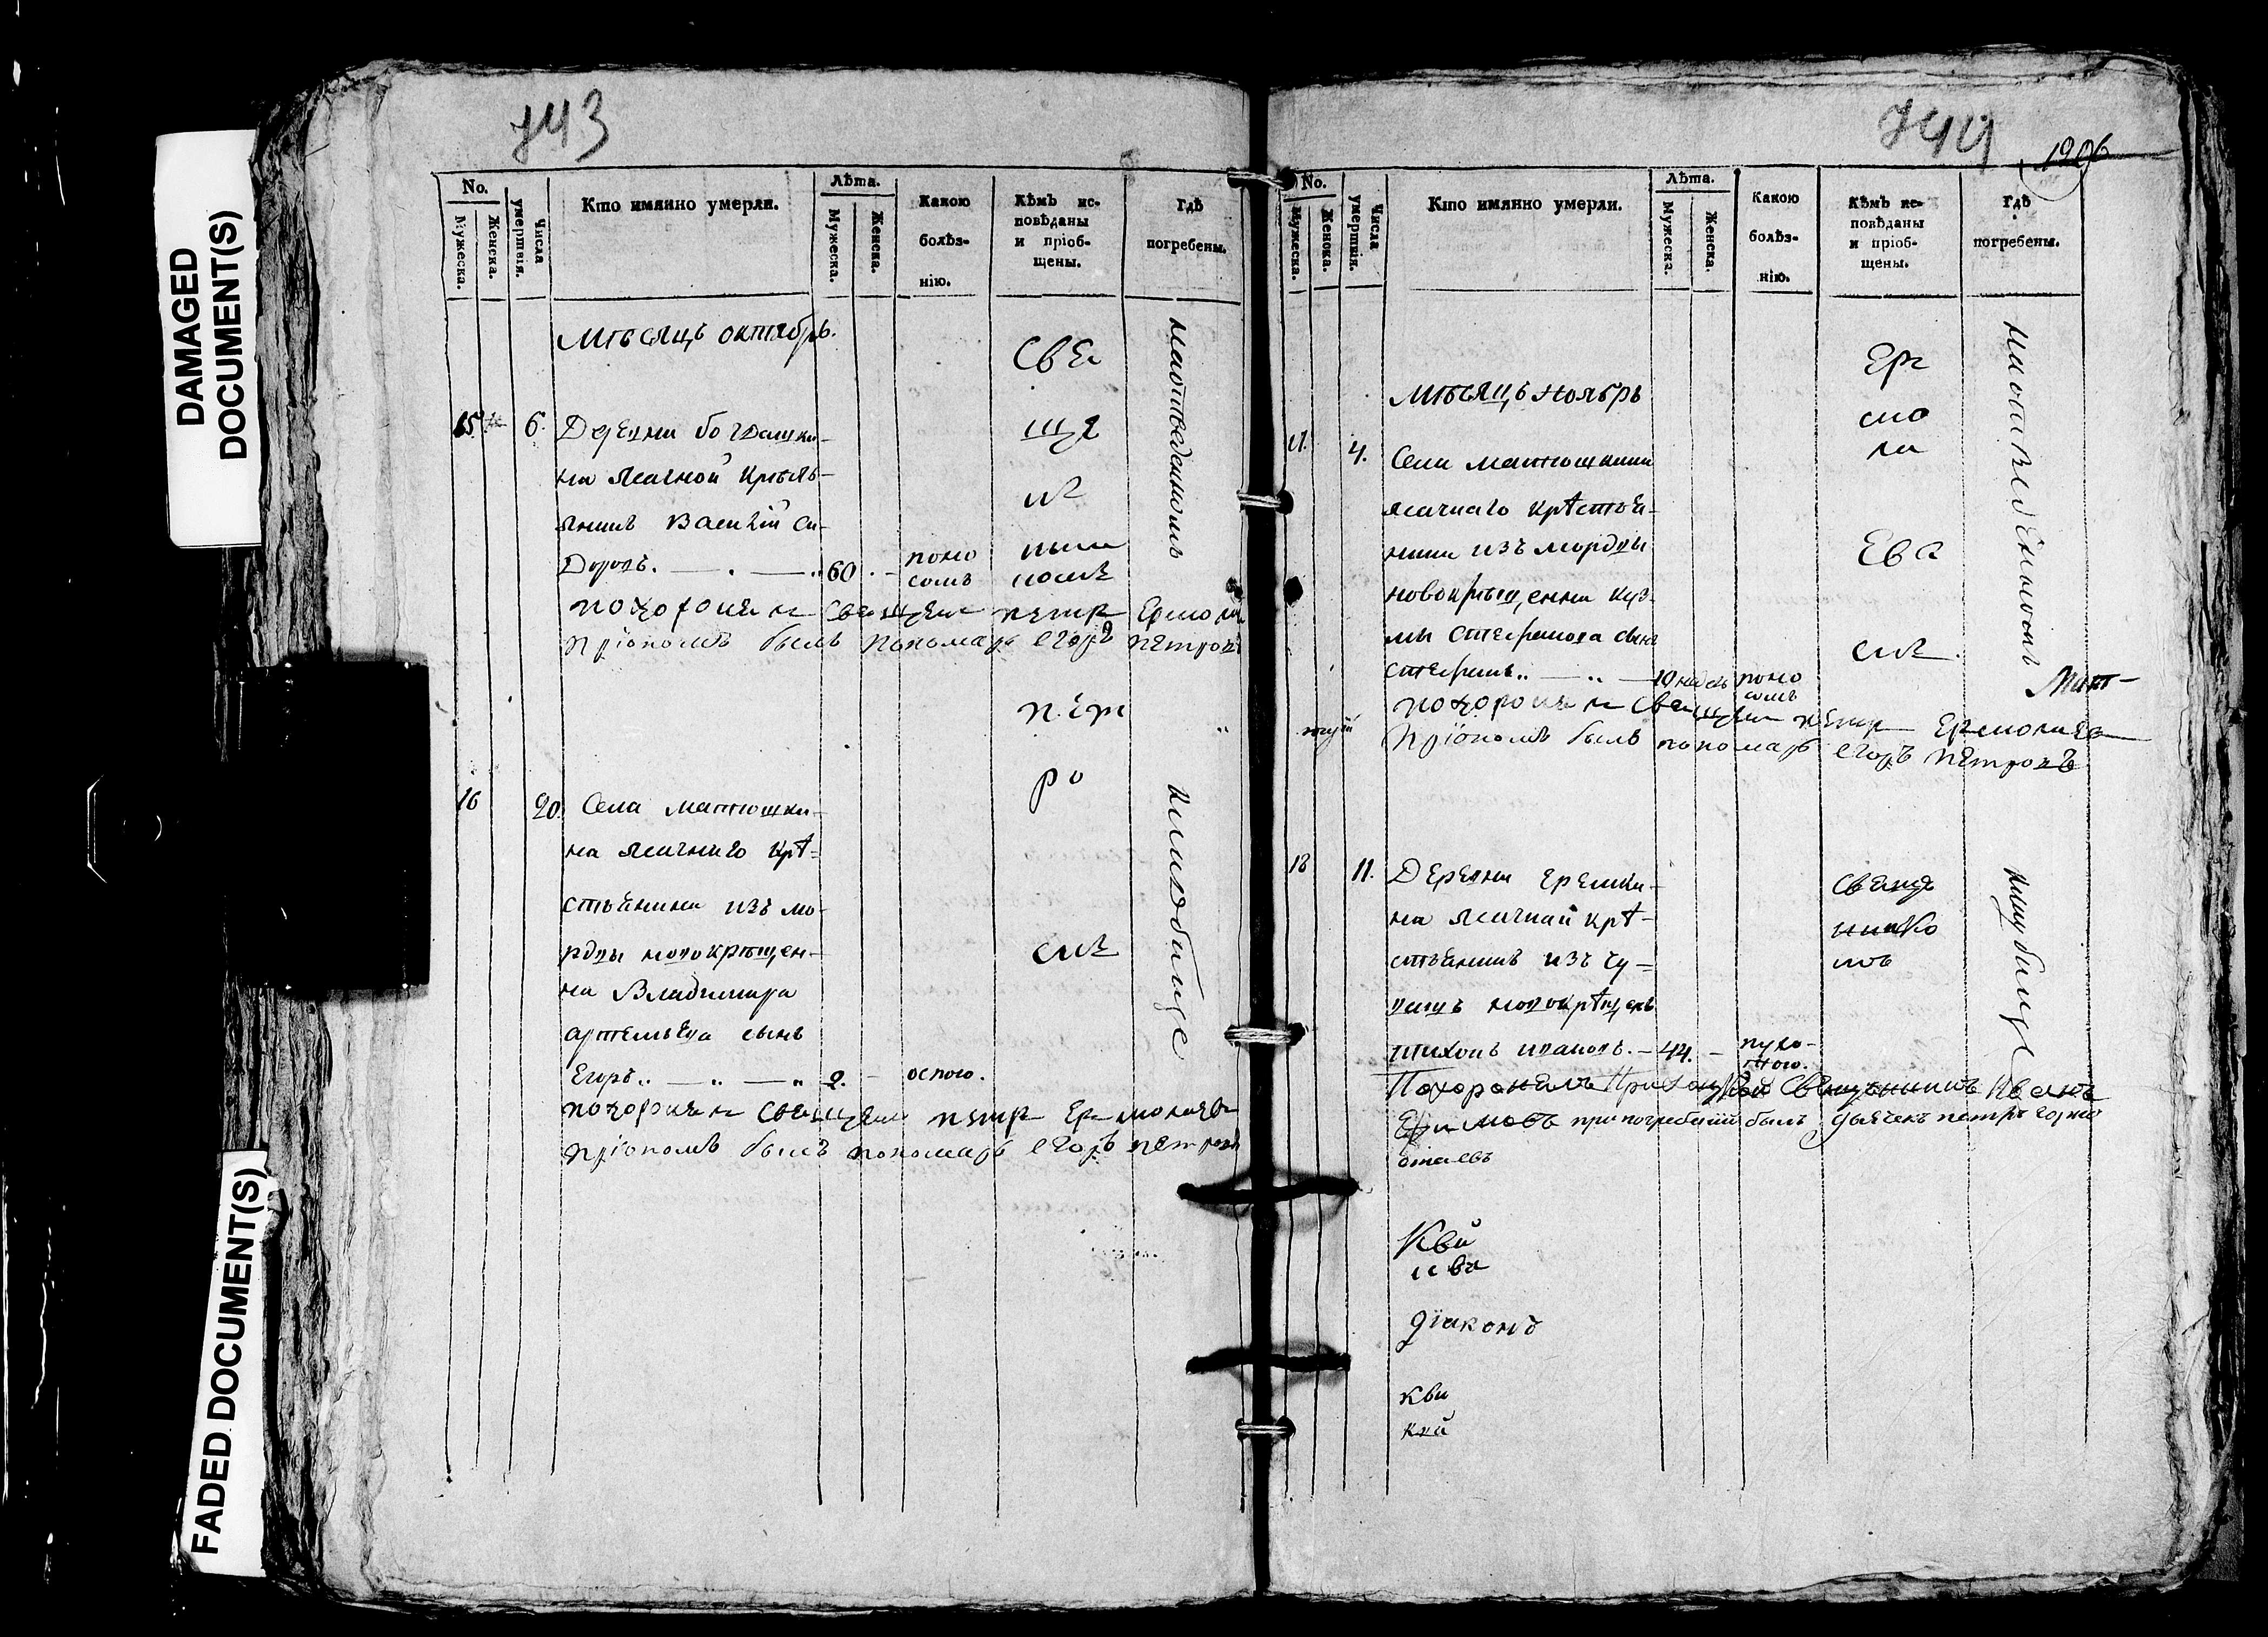 DAMAGED
DOCUMENT(S)
FADED DOCUMENT(S)
743
No.
Мужеска.
Женска.
Числа умертвія.
Кто имянно умерли.
Лѣта.
Мужеска.
Женска.
Какою болѣз-
нію.
Кѣмъ ис-
повѣданы
и пріоб-
щены.
Гдѣ
погребены.
Мѣсяцъ октябрь.
15 6. Деревни богдашки-
на ясачной крѣстъ-
янинъ Василій си-
доровъ. — . — 60 . — поно
сомъ
Све
ще
н
ным
номъ
наотведенномъ
похоронен Свещен петр Ермола
пріпомъ былъ пономарь егоръ петровъ
петр
ро
смъ
16 20. Села матюшки-
на ясачнаго крѣ-
стьянина изъ мо-
рдвы новокрѣщен-
на Владимира
артемьева сынъ
Егоръ.. — .. — .. 2. — оспою.
кладбище
похоронен Свещен петр Ермолаев
пріпомъ былъ пономарь егоръ петровъ
744
1206
No.
Мужеска.
Женска.
Числа умертвія.
Кто имянно умерли.
Лѣта.
Мужеска.
Женска.
Какою
болѣз-
нію.
Кѣмъ ис-
повѣданы
и пріоб-
щены.
Гдѣ
погребены.
Мѣсяцъ Ноябрь
17. 4. Села матюшкина
ясачнаго крѣстья-
нина изъ мордвы
новокрѣщенна куз-
мы стефанова сынъ
стефанъ.. — .. — 10 недель поно
сомъ
Ер
мо
ла
Ева
смъ.
наотведенномъ
похоронен Свещен петр Ермолаев
пріпомъ былъ пономарь егоръ петровъ
18 11. Деревни ерешки-
на ясачнай крѣ-
стьянинъ изъ чу-
вашъ новокрѣщенъ
тихонъ ивановъ. — 44. —
Свеще
ннико
мъ
кладбище
Похороненъ Приходской Священникъ Иванъ
Ефимовъ при погребеніи былъ дьячекъ петръ
діаконъ